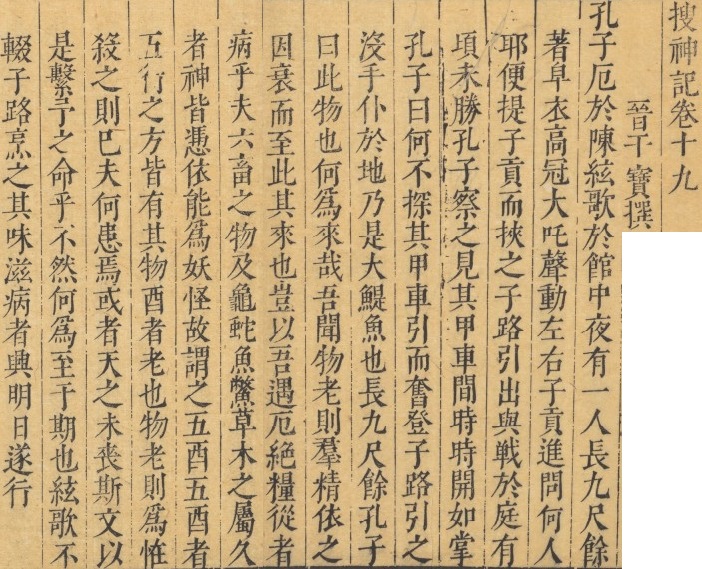 搜神記卷十九
晉干寶撰
孔子厄於陳絃歌於館中夜有一人長九尺餘
著皁衣高冠大吒聲動左右子貢進問何人
耶便提子貢而挾之子路引出與戰於庭有
頃未勝孔子察之見其甲車間時時開如掌
孔子曰何不探其甲車引而奮登子路引之
沒手仆於地乃是大鯷魚也長九尺餘孔子
曰此物也何爲來哉吾聞物老則羣精依之
因衰而至此其來也豈以吾遇厄絶糧從者
病乎夫六畜之物及龜蛇魚鱉草木之屬久
者神皆憑依能爲妖怪故謂之五酉五酉者
五行之方皆有其物酉者老也物老則爲怪
殺之則已夫何患焉或者天之未喪斯文以
是繫予之命乎不然何爲至于期也絃歌不
輟子路烹之其味滋病者興明日遂行